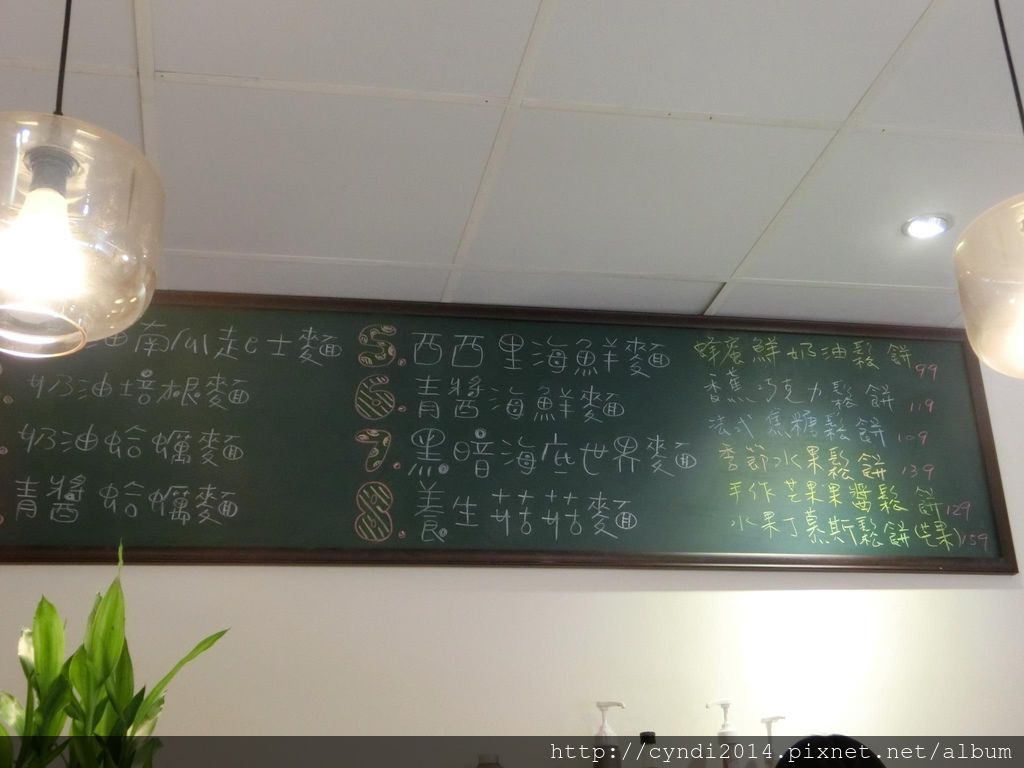 油南瓜起士麵
奶油培根麵
奶油蛤蠣麵
青醬蛤蠣麵
5. 西西里海鮮麵
6. 青醬海鮮麵
7. 黑暗海底世界麵
8. 養生菇菇麵
蜂蜜鮮奶油鬆餅 99
香蕉巧克力鬆餅 119
法式焦糖鬆餅 109
季節水果鬆餅 139
手作芒果果醬鬆餅 129
水果丁慕斯鬆餅(芒果) 159
http://cyndi2014.pixnet.net/album